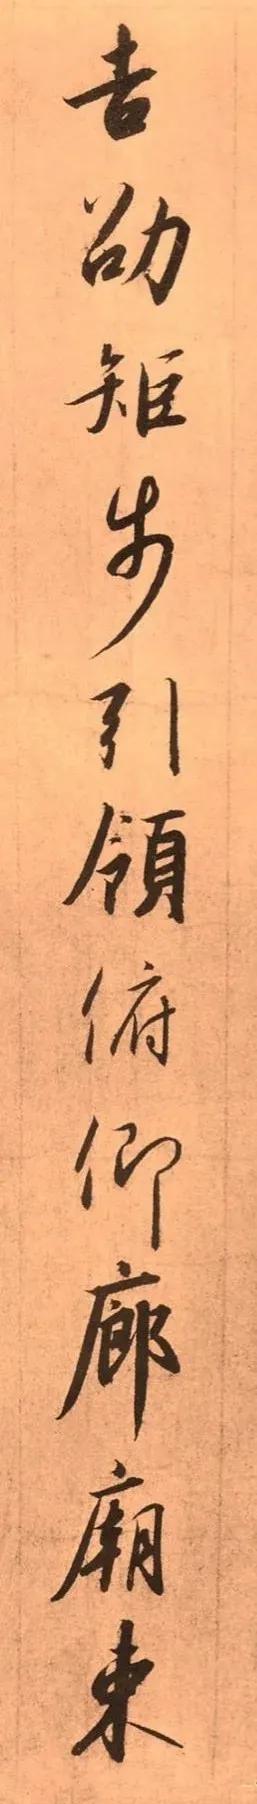 吉劭矩步引領俯仰廊廟束